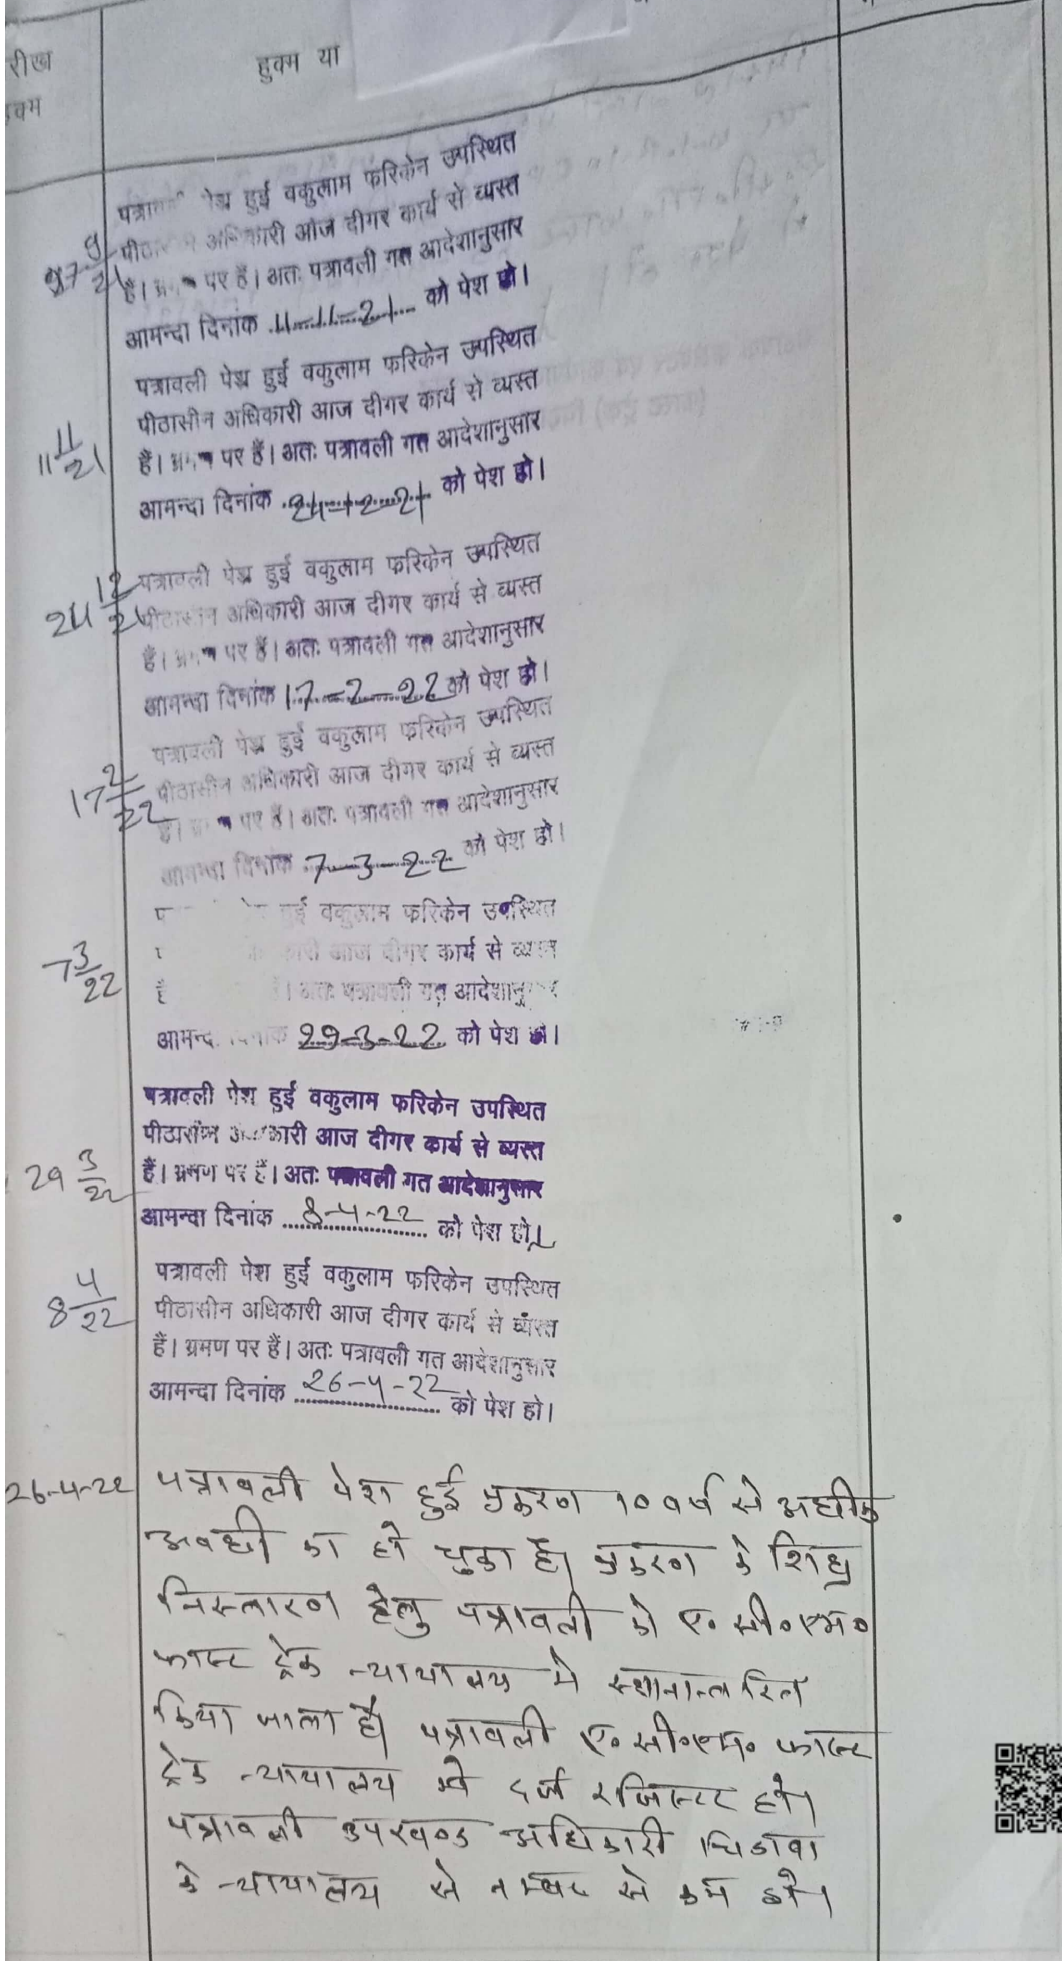 रीख
हुक्म या
क्म
पेश हुई वकुलाम फरिकेन उपस्थित
अधिकारी आज दीगर कार्य से व्यस्त
9/21
है। पर हैं। अतः पत्रावली गत आदेशानुसार
आमन्दा दिनांक 11-11-21 को पेश हो।
पत्रावली पेश हुई वकुलाम फरिकेन उपस्थित
पीठासीन अधिकारी आज दीगर कार्य से व्यस्त
11 11/21
हैं। पर हैं। अतः पत्रावली गत आदेशानुसार
आमन्दा दिनांक 24-12-21 को पेश हो।
पत्रावली पेश हुई वकुलाम फरिकेन उपस्थित
24 12/21
पीठासीन अधिकारी आज दीगर कार्य से व्यस्त
हैं। पर हैं। अतः पत्रावली गत आदेशानुसार
आमन्दा दिनांक 17-2-22 को पेश हो।
पत्रावली पेश हुई वकुलाम फरिकेन उपस्थित
17 2/22
पीठासीन अधिकारी आज दीगर कार्य से व्यस्त
हैं। पर हैं। अतः पत्रावली गत आदेशानुसार
आमन्दा दिनांक 7-3-22 को पेश हो।
हुई वकुलाम फरिकेन उपस्थित
7 3/22
कारी आज दीगर कार्य से व्यस्त
है। अतः पत्रावली गत आदेशानुसार
आमन्दा दिनांक 29-3-22 को पेश हो।
पत्रावली पेश हुई वकुलाम फरिकेन उपस्थित
पीठासीन अधिकारी आज दीगर कार्य से व्यस्त
29 3/22
हैं। भ्रमण पर हैं। अतः पत्रावली गत आदेशानुसार
आमन्दा दिनांक 8-4-22 को पेश हो।
पत्रावली पेश हुई वकुलाम फरिकेन उपस्थित
8 4/22
पीठासीन अधिकारी आज दीगर कार्य से व्यस्त
हैं। भ्रमण पर हैं। अतः पत्रावली गत आदेशानुसार
आमन्दा दिनांक 26-4-22 को पेश हो।
26-4-22 पत्रावली पेश हुई प्रकरण १० वर्ष से अधीक
अवधी का हो चुका है। प्रकरण के शिघ्र
निस्तारण हेतु पत्रावली को ए० सी०एम०
फास्ट ट्रेक न्यायालय में स्थानान्तरित
किया जाता है। पत्रावली ए० सी०एम० फास्ट
ट्रेक न्यायालय में दर्ज रजिस्टर हो।
पत्रावली उपखण्ड अधिकारी चिडावा
के न्यायालय से नम्बर से कम हो।